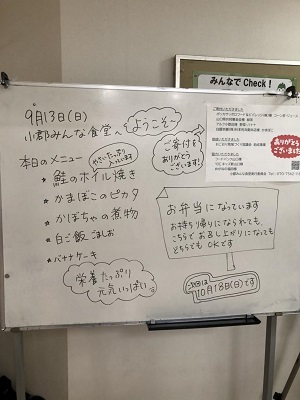 みんなで Check!
9月13日(日)
小郡みんな食堂へ ようこそ〜
本日のメニュー
やさいたっぷり
入っています
★ 鮭のホイル焼き
★ かまぼこのピカタ
★ かぼちゃの煮物
★ 白ご飯 ごましお
★ バナナケーキ
栄養たっぷり
元気いっぱい
ご寄付を
ありがとう
ございます!
ありがとう
ございます!
お弁当になっています
お持ち帰りになられても、
こちらでお召し上がりになっても
どちらでもOKです
次回は
10月18日(日)です